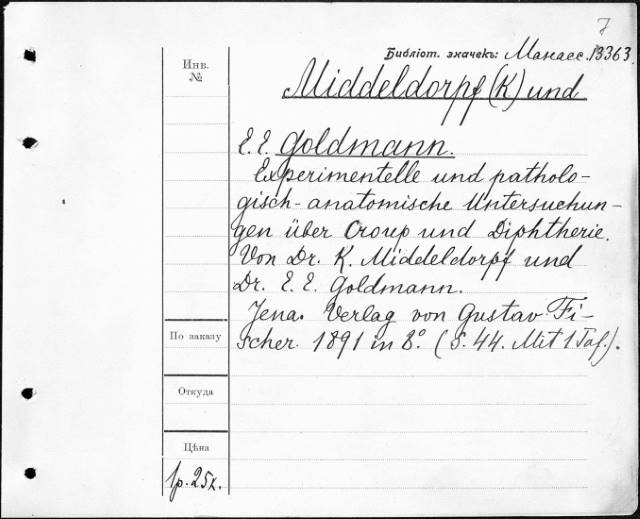 7
Библіот. значекъ: Манасс. 13363
Инв.
№
Middeldorpf (K) und
E. E. Goldmann.
Experimentelle und patholo-
gisch-anatomische Untersuchun-
gen über Croup und Diphtherie.
Von Dr. K. Middeldorpf und
Dr. E. E. Goldmann.
Jena. Verlag von Gustav Fi-
scher. 1891 in 8º. (S. 44. Mit 1 Taf.).
По заказу
Откуда
Цѣна
1р. 25к.